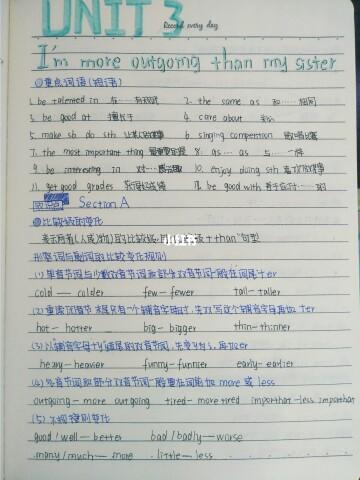 UNIT 3
Record every day
I'm more outgoing than my sister
①重点词语(短语)
1. be talented in 在……有天赋 2. the same as 和……相同
3. be good at 擅长于 4. care about 关心
5. make sb do sth 让某人做某事 6. singing competition 歌唱比赛
7. the most important thing 最重要的是 8. as … as 与……一样
9. be interesting in 对……感兴趣 10. enjoy doing sth 喜欢做某事
11. get good grades 取得好成绩 12. be good with 善于应付……的
Section A
①比较级的变化
表示两者(人或物)的比较级 than"句型
形容词与副词的比较级变化规则
(1)单音节词与少数双音节词和部分双音节词一般在词尾+er
cold — colder few - fewer tall - taller
(2)重读闭音节末尾只有一个辅音字母时,先双写这个辅音字母再加er
hot - hotter big - bigger thin - thinner
(3)以辅音字母+y结尾的双音节词,先变y为i,再加er
heavy - heavier funny - funnier early - earlier
(4)多音节词和部分双音节词一般要在词前加 more 或 less
outgoing - more outgoing tired - more tired important - less important
(5)不规则变化
good / well — better bad / badly — worse
many / much — more little — less
小红书